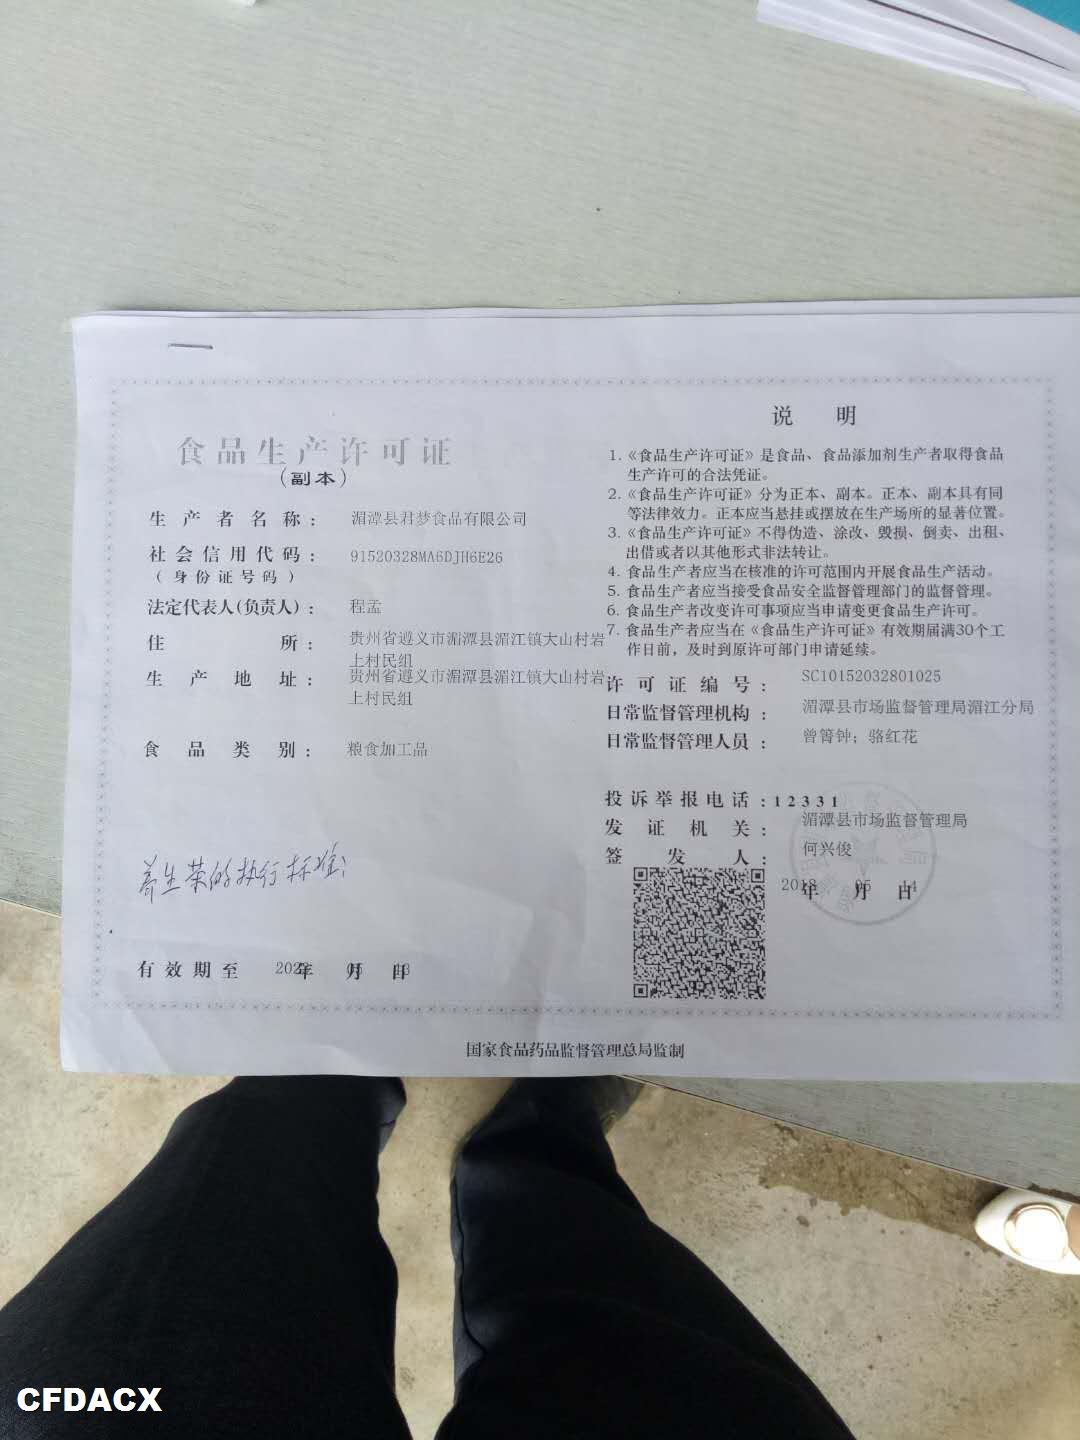 食品生产许可证
（副本）
生产者名称： 湄潭县君梦食品有限公司
社会信用代码： 91520328MA6DJH6E26
（身份证号码）
法定代表人(负责人)： 程孟
住所： 贵州省遵义市湄潭县湄江镇大山村岩
上村民组
生产地址： 贵州省遵义市湄潭县湄江镇大山村岩
上村民组
食品类别： 粮食加工品
的执行标准:
有效期至 年 月 日
说 明
1. 《食品生产许可证》是食品、食品添加剂生产者取得食品
生产许可的合法凭证。
2. 《食品生产许可证》分为正本、副本。正本、副本具有同
等法律效力。正本应当悬挂或摆放在生产场所的显著位置。
3. 《食品生产许可证》不得伪造、涂改、毁损、倒卖、出租、
出借或者以其他形式非法转让。
4. 食品生产者应当在核准的许可范围内开展食品生产活动。
5. 食品生产者应当接受食品安全监督管理部门的监督管理。
6. 食品生产者改变许可事项应当申请变更食品生产许可。
7. 食品生产者应当在《食品生产许可证》有效期届满30个工
作日前，及时到原许可部门申请延续。
许可证编号： SC10152032801025
日常监督管理机构： 湄潭县市场监督管理局湄江分局
日常监督管理人员： 曾箐钟；骆红花
投诉举报电话：12331
发证机关： 湄潭县市场监督管理局
签发人： 何兴俊
年 月 日
国家食品药品监督管理总局监制
CFDACX